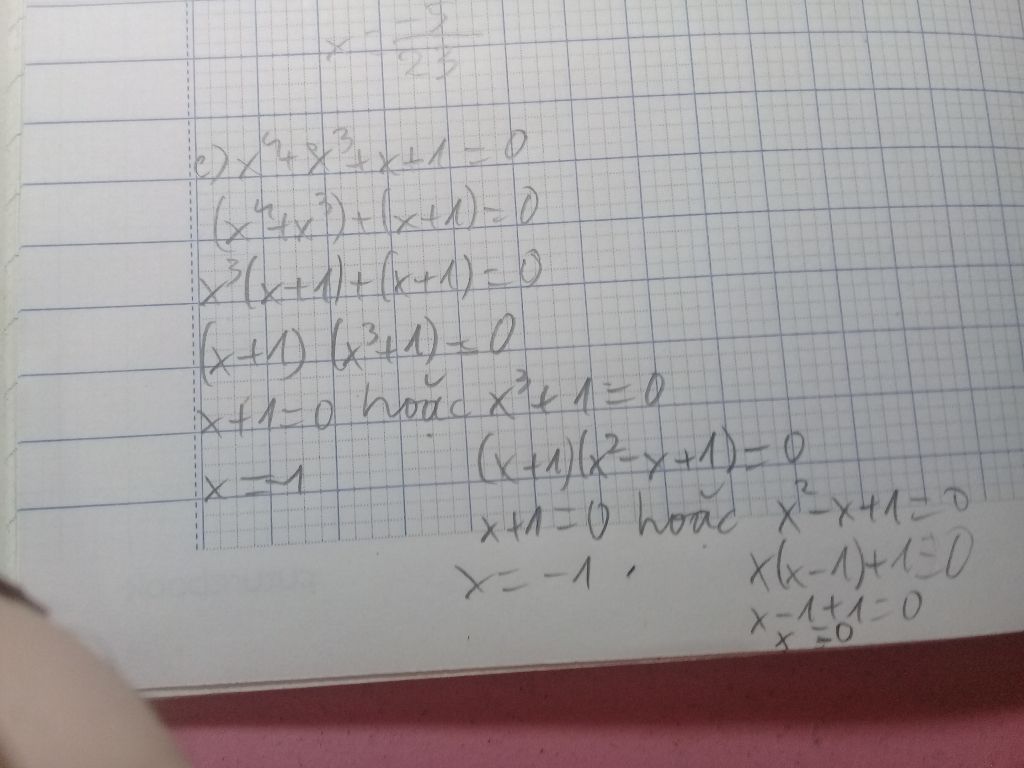 x = -3/23
c) x⁴+x³+x+1=0
(x⁴+x³)+(x+1)=0
x³(x+1)+(x+1)=0
(x+1) (x³+1)=0
x+1=0 hoặc x³+1=0
x=-1 (x+1)(x²-x+1)=0
x+1=0 hoặc x²-x+1=0
x=-1 . x(x-1)+1=0
x-1+1=0
x=0